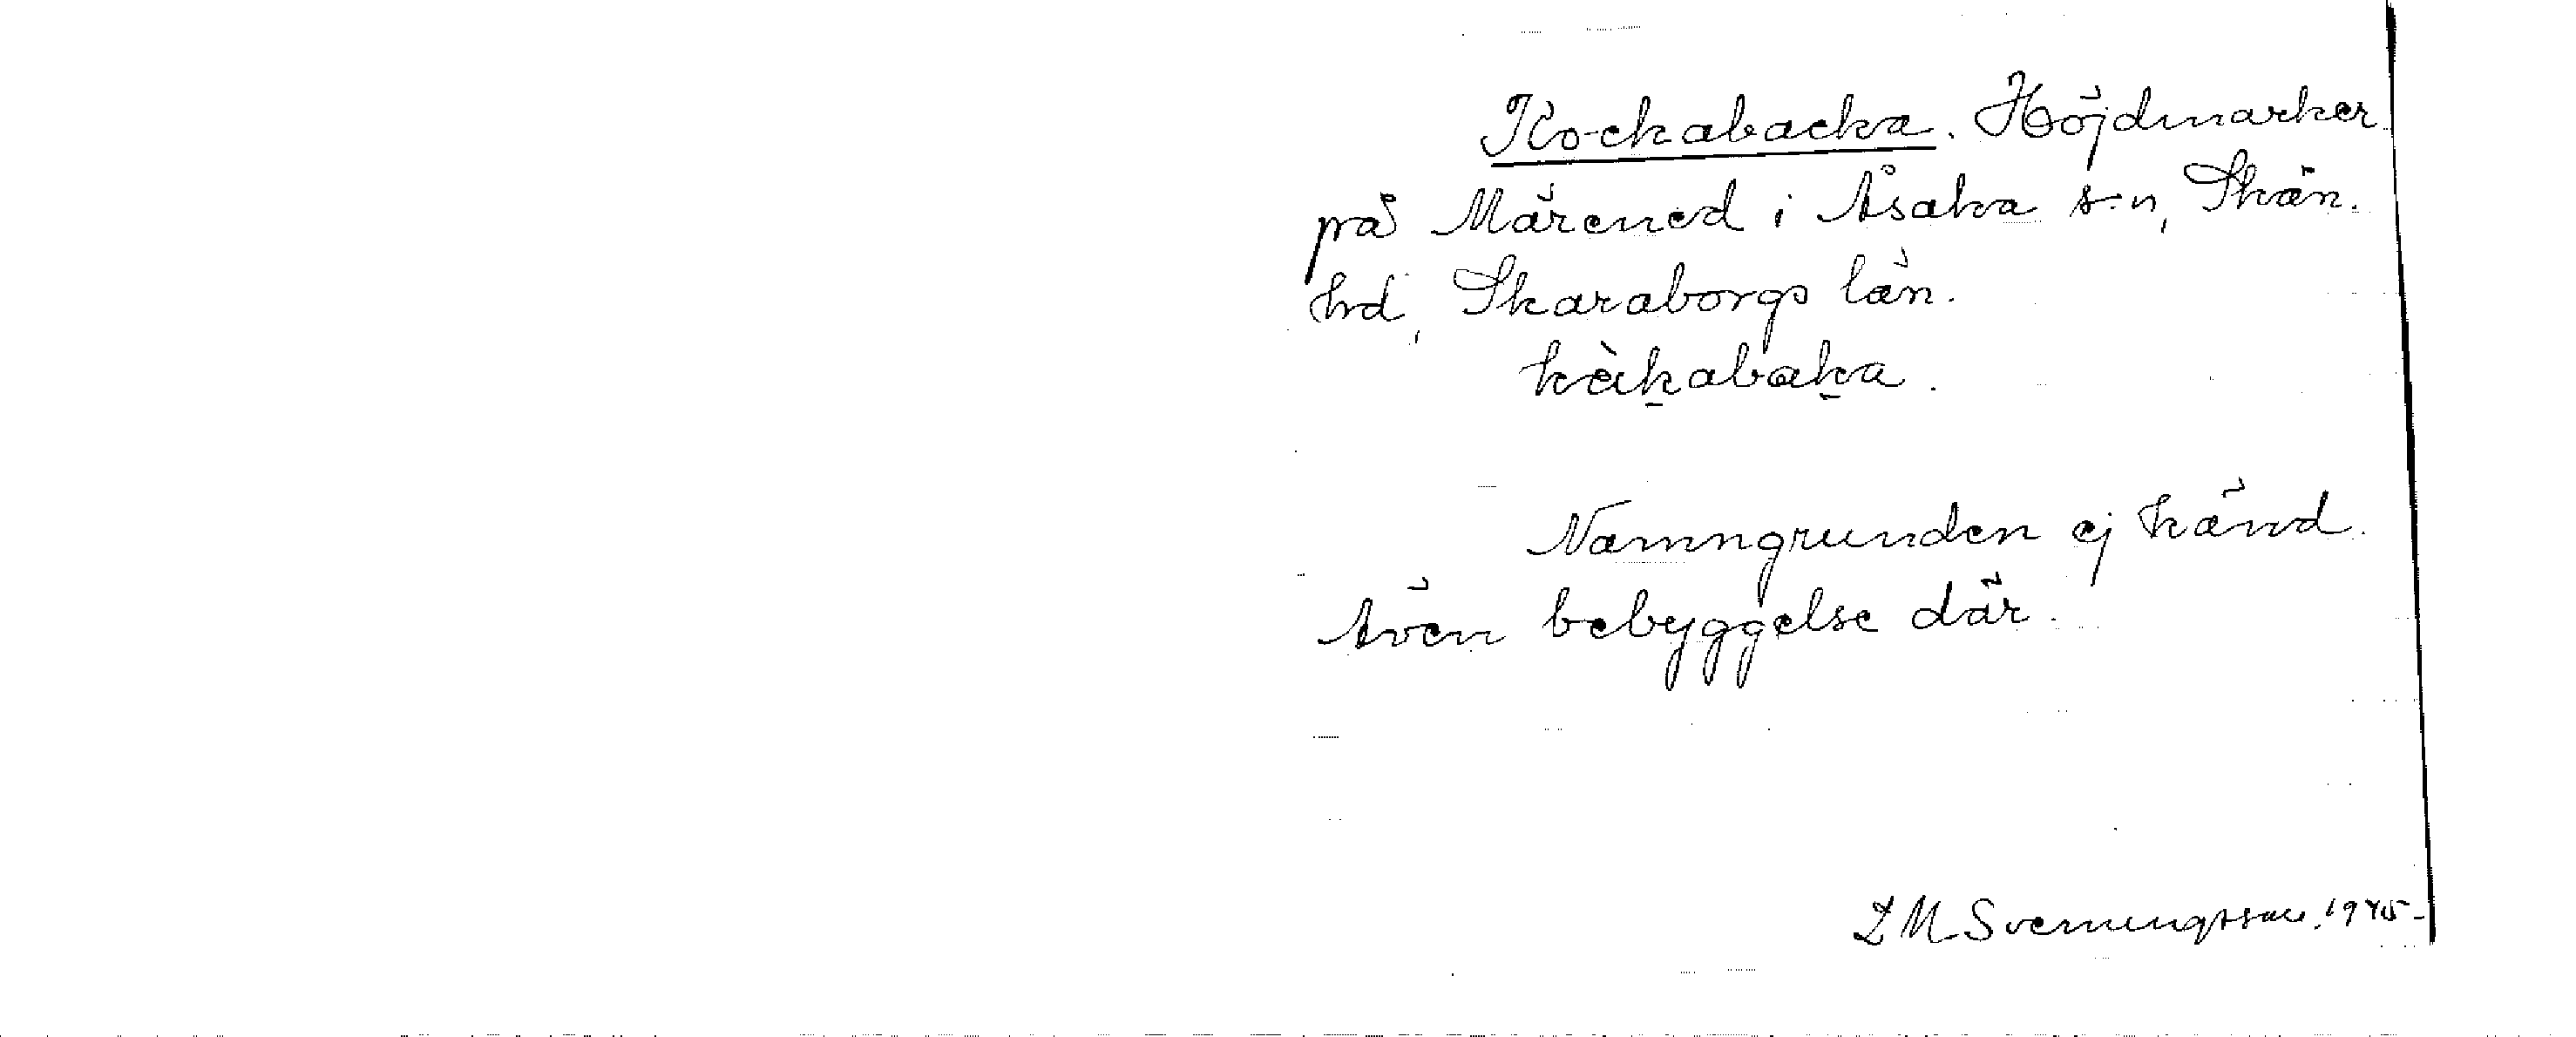 Kockabacka. Höjdmarker
på Märened i Åsaka s:n, Skån.
hd, Skaraborgs län.
kàkabaka.
Namngrunden ej känd.
Även bebyggelse där.
L M Svenungsson. 1945